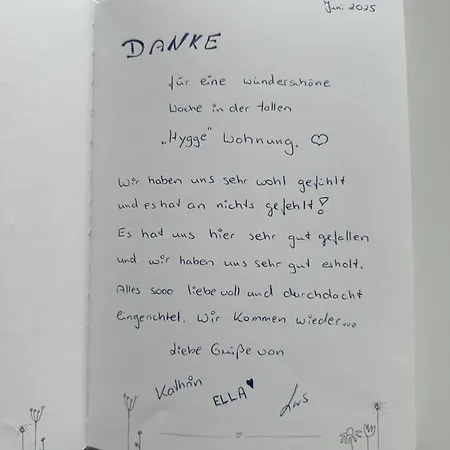 Juni 2025
DANKE
für eine wunderschöne
Woche in der tollen
„Hygge" Wohnung. ♡
Wir haben uns sehr wohl gefühlt
und es hat an nichts gefehlt!
Es hat uns hier sehr gut gefallen
und wir haben uns sehr gut erholt.
Alles sooo liebevoll und durchdacht
eingerichtet. Wir kommen wieder...
Liebe Grüße von
Kathrin ELLA♥